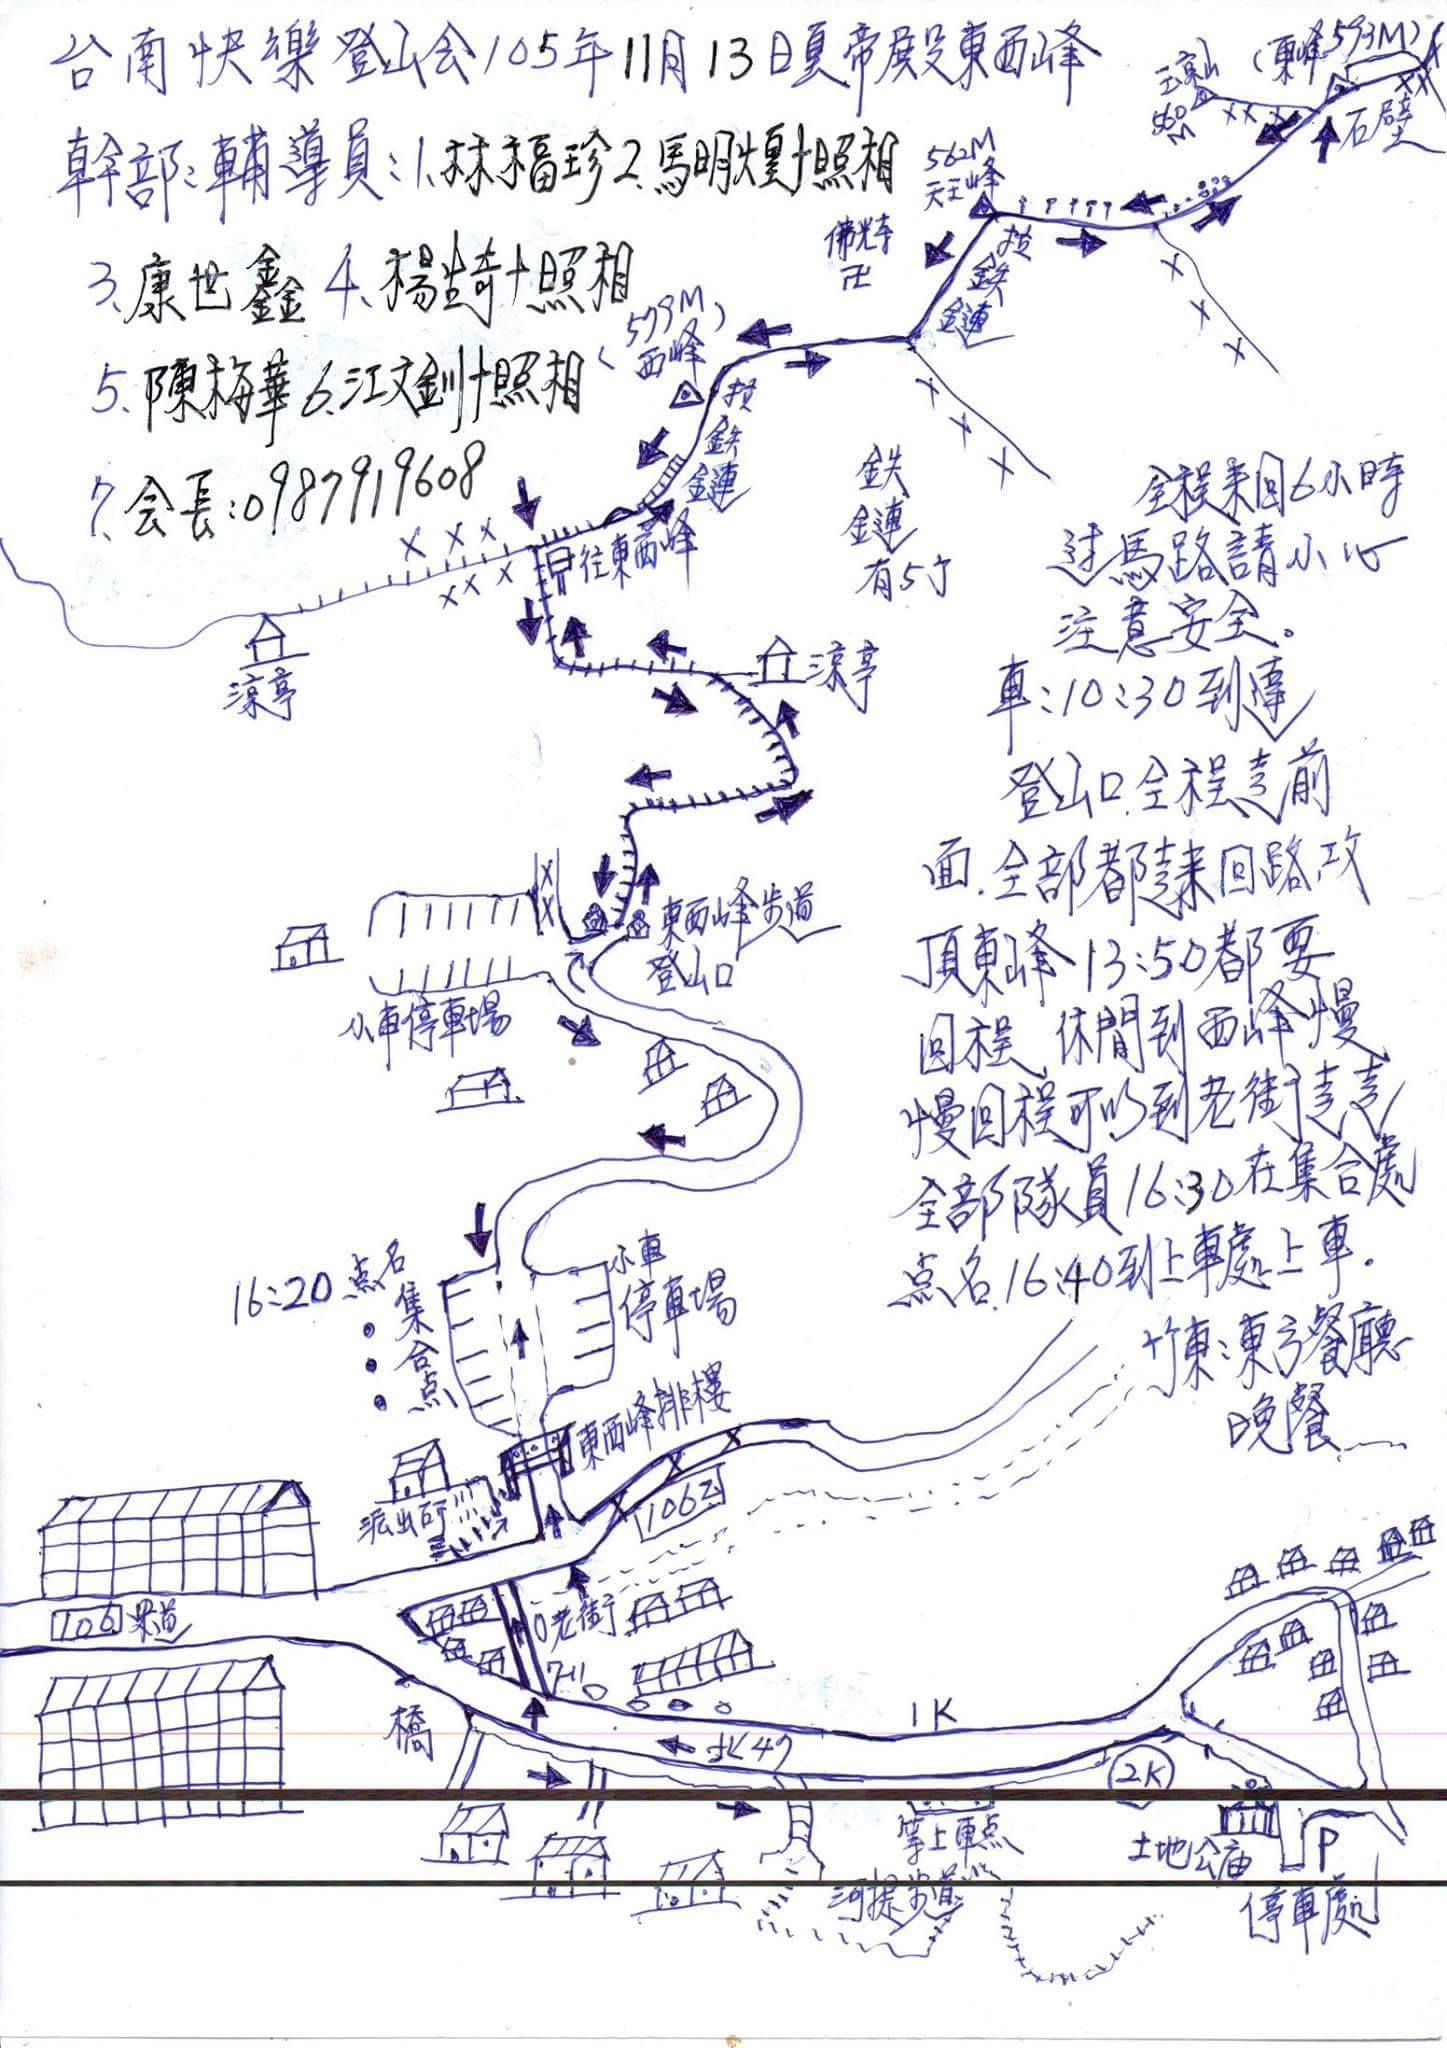 台南快樂登山会105年11月13日皇帝殿東西峰
幹部:輔導員:1.林福珍2.馬明煌+照相
3.康世鑫4.楊崎+照相
5.陳梅華6.江文釧+照相
7.会長:0987919608
玉京山
560M
(東峰593M)
石壁
562M
天王峰
佛光寺
卍
拉鉄鏈
(579M)
西峰
拉鉄鏈
鉄鏈有5寸
往東西峰
涼亭
涼亭
全程来回6小時
过馬路請小心
注意安全。
車:10:30到達
登山口.全程走前
面.全部都走来回路攻
頂東峰13:50都要
回程.休閒到西峰慢
慢回程可以到老街走走
全部隊員16:30在集合處
点名.16:40到上車處上車.
竹東:東方餐廳
晚餐
東西峰步道
登山口
小車停車場
16:20点名
集合点
小車
停車場
東西峰排樓
派出所
106乙
106県道
老街
7-11
橋
1K
北47
2K
等上車点
河提步道
土地公庙
P
停車處